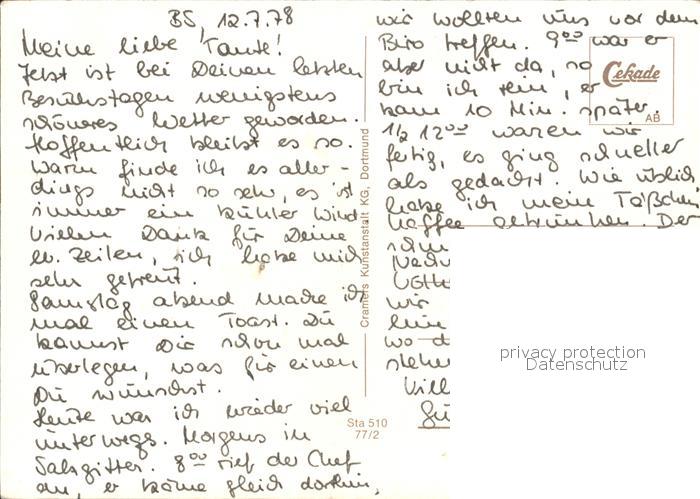 BS, 12.7.78
Meine liebe Tante!
Jetzt ist bei Deinen letzten
Besuchstagen wenigstens
schöneres Wetter geworden.
Hoffentlich bleibt es so.
Warm finde ich es aller-
dings nicht so sehr, es ist
immer ein kühler Wind.
Vielen Dank für Deine
lb. Zeilen, ich habe mich
sehr gefreut.
Samstag abend mache ich
mal einen Toast. Du
kannst Dir schon mal
überlegen, was für einen
Du wünschst.
Heute war ich wieder viel
unterwegs. Morgens in
Salzgitter. 8⁰⁰ rief der Chef
an, er käme gleich dorthin,
wir wollten uns vor dem
Büro treffen. 9⁰⁰ war er
aber nicht da, so
bin ich rein, er
kam 10 Min. später.
1/2 12⁰⁰ waren wir
fertig, es ging schneller
als gedacht. Wie üblich
habe ich mein Täßchen
Kaffee getrunken. Der
wir
wo
Cramers Kunstanstalt KG, Dortmund
Cekade
AB
Sta 510
77/2
privacy protection
Datenschutz